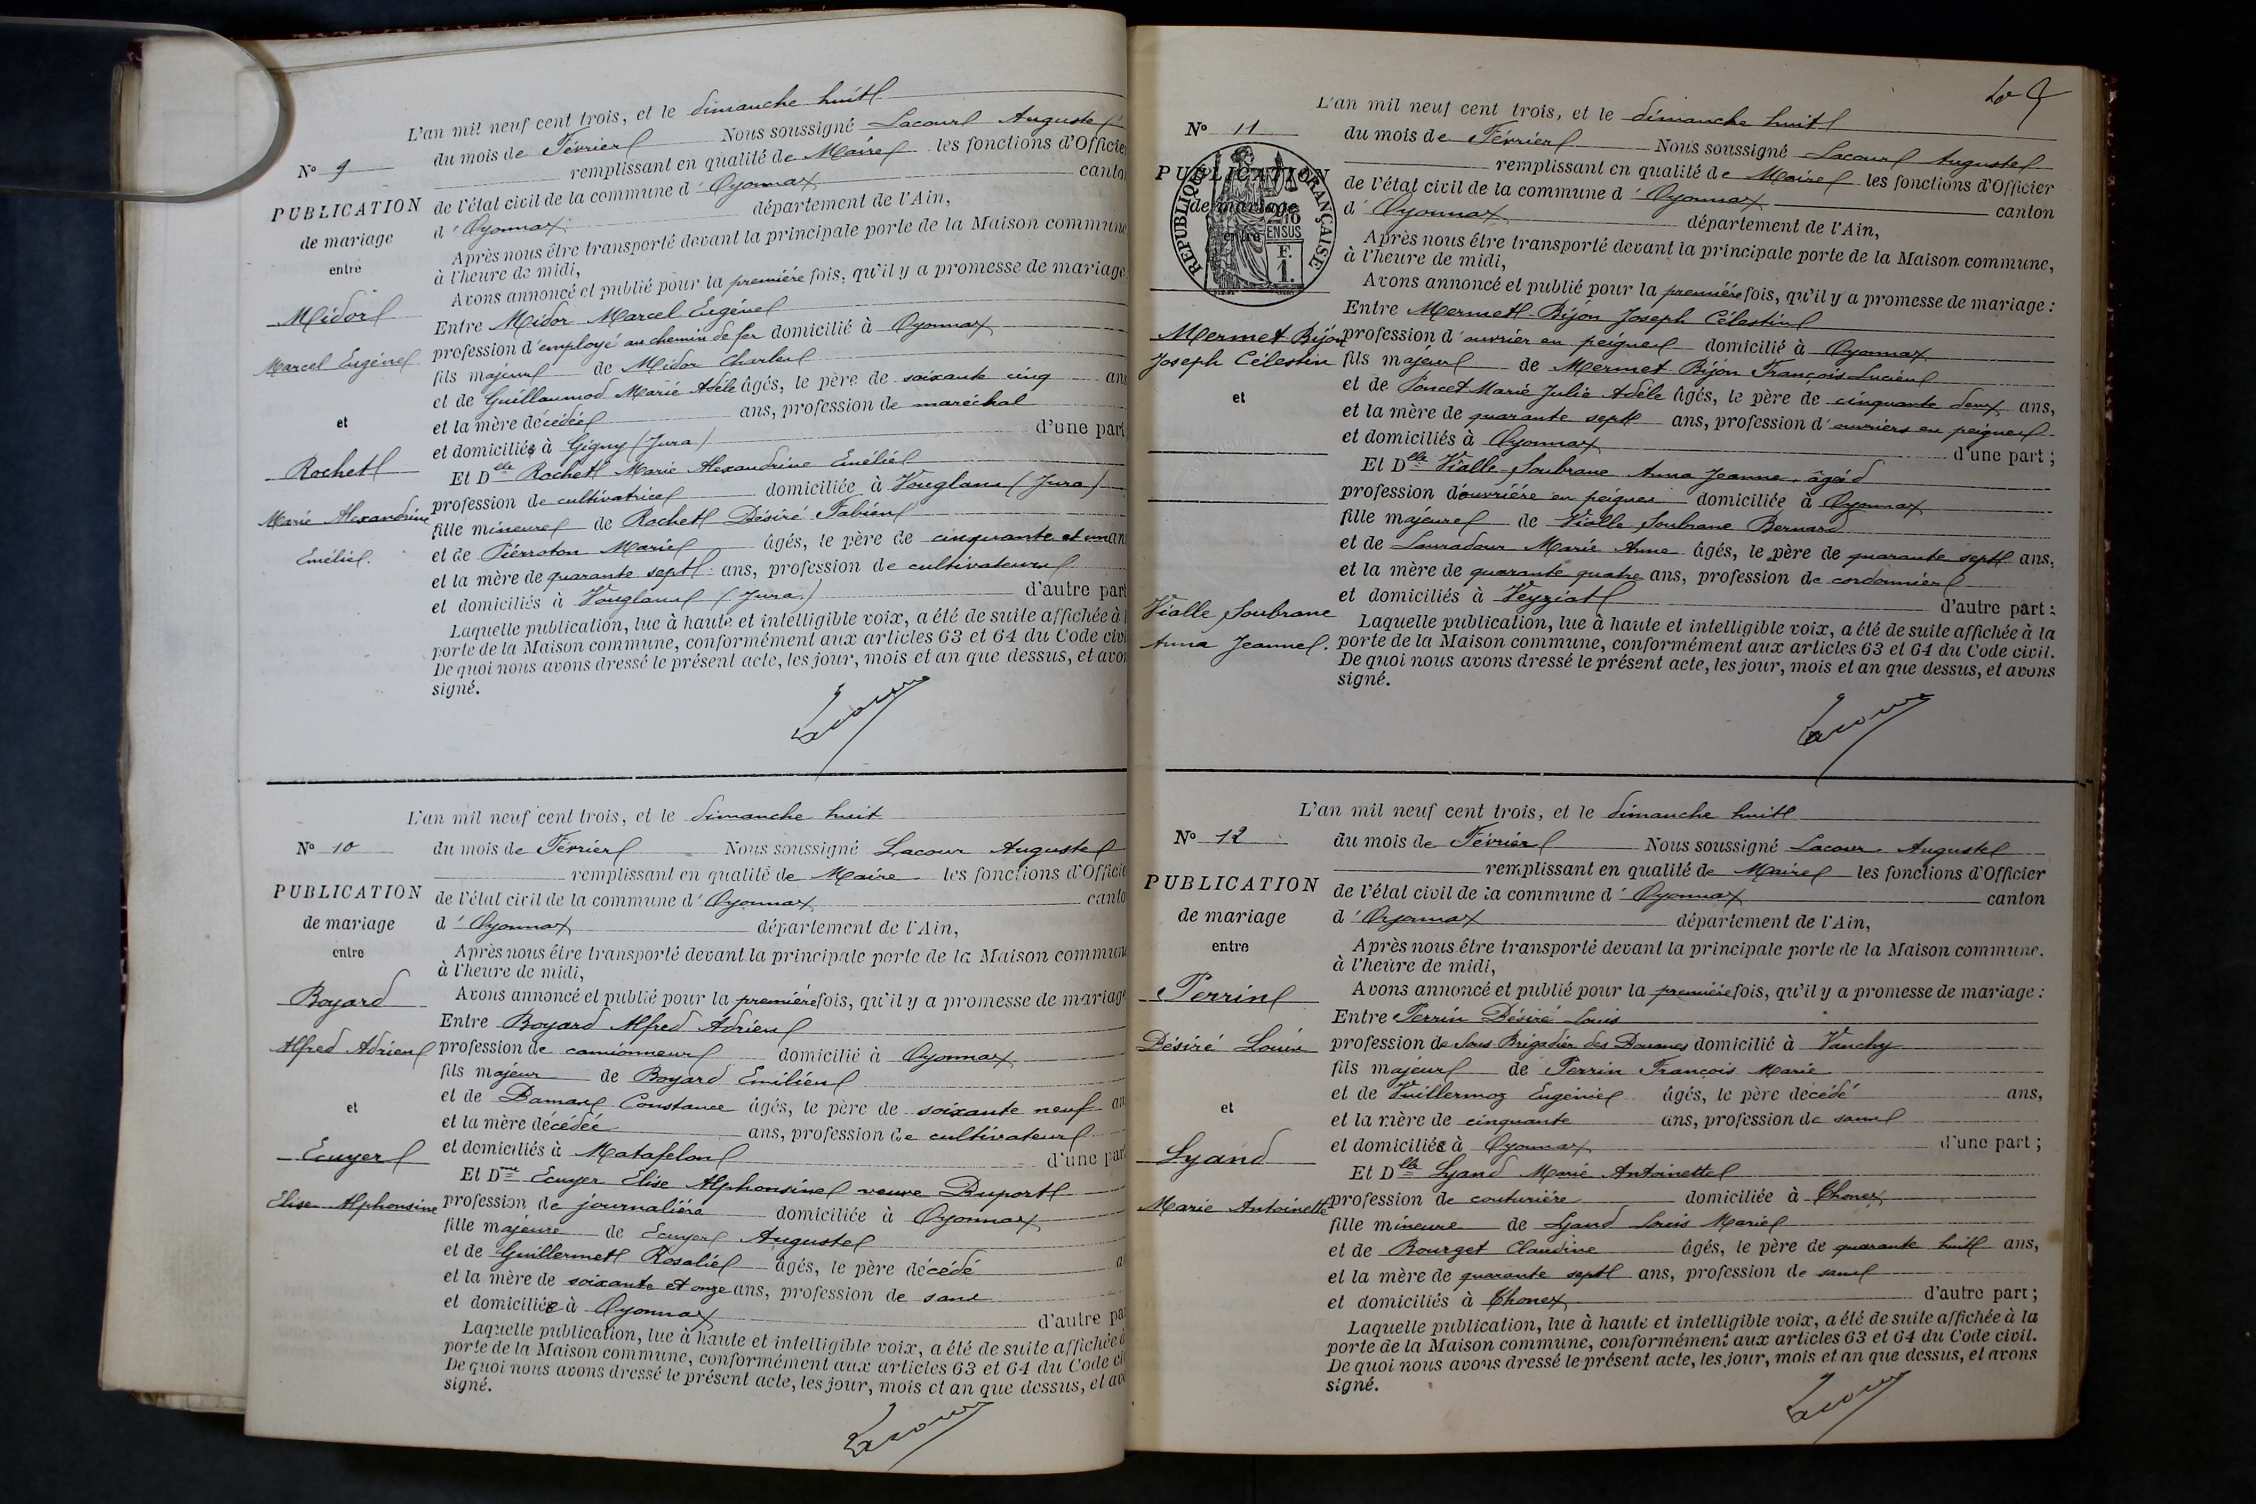 L'an mil neuf cent trois, et le dimanche huit
N° 9
du mois de Février Nous soussigné Lacour Auguste
remplissant en qualité de Maire les fonctions d'Officie
PUBLICATION
de l'état civil de la commune d' Oyonnax canto
de mariage
d' Oyonnax département de l'Ain,
entre
Après nous être transporté devant la principale porte de la Maison commune
à l'heure de midi,
Avons annoncé et publié pour la première fois, qu'il y a promesse de mariage
Midor
Entre Midor Marcel Eugène
Marcel Eugène
profession d'employé au chemin de fer domicilié à Oyonnax
fils majeur de Midor Charles
et de Guillaumod Marie Adèle âgés, le père de soixante cinq ans
et
et la mère décédée ans, profession de maréchal
et domiciliés à Gigny (Jura) d'une part
Rochet
Et Delle Rochet Marie Alexandrine Emélie
profession de cultivatrice domiciliée à Vouglans (Jura)
Marie Alexandrine
fille mineure de Rochet Désiré Fabien
Emélie.
et de Pierroton Marie âgés, le père de cinquante et un an
et la mère de quarante sept ans, profession de cultivateurs
et domiciliés à Vouglans (Jura) d'autre part
Laquelle publication, lue à haute et intelligible voix, a été de suite affichée à l
porte de la Maison commune, conformément aux articles 63 et 64 du Code civi
De quoi nous avons dressé le présent acte, les jour, mois et an que dessus, et avon
signé.
Lacour
L'an mil neuf cent trois, et le dimanche huit
N° 10
du mois de Février Nous soussigné Lacour Auguste
remplissant en qualité de Maire les fonctions d'Offici
PUBLICATION
de l'état civil de la commune d' Oyonnax canto
de mariage
d' Oyonnax département de l'Ain,
entre
Après nous être transporté devant la principale porte de la Maison commun
à l'heure de midi,
Boyard
Avons annoncé et publié pour la première fois, qu'il y a promesse de mariag
Entre Boyard Alfred Adrien
Alfred Adrien
profession de camionneur domicilié à Oyonnax
fils majeur de Boyard Emilien
et de Daman Constance âgés, le père de soixante neuf an
et
et la mère décédée ans, profession de cultivateur
et domiciliés à Matafelon d'une par
Ecuyer
Et Dme Ecuyer Elise Alphonsine veuve Duport
Elise Alphonsine
profession de journalière domiciliée à Oyonnax
fille majeure de Ecuyer Auguste
et de Guillermet Rosalie âgés, le père décédé a
et la mère de soixante et onze ans, profession de sans
et domiciliée à Oyonnax d'autre pa
Laquelle publication, lue à haute et intelligible voix, a été de suite affichée à
porte de la Maison commune, conformément aux articles 63 et 64 du Code ci
De quoi nous avons dressé le présent acte, les jour, mois et an que dessus, et avo
signé.
Lacour
L'an mil neuf cent trois, et le dimanche huit
N° 11
du mois de Février Nous soussigné Lacour Auguste
remplissant en qualité de Maire les fonctions d'Officier
PUBLICATION
RÉPUBLIQUE FRANÇAISE
de l'état civil de la commune d' Oyonnax canton
de mariage
d' Oyonnax département de l'Ain,
entre
EN SUS
F.
1.
Après nous être transporté devant la principale porte de la Maison commune,
à l'heure de midi,
Avons annoncé et publié pour la première fois, qu'il y a promesse de mariage :
Entre Mermet-Bijon Joseph Célestin
Mermet Bijon
profession d'ouvrier en peignes domicilié à Oyonnax
Joseph Célestin
fils majeur de Mermet-Bijon François Lucien
et de Poncet Marie Julie Adèle âgés, le père de cinquante deux ans,
et
et la mère de quarante sept ans, profession d'ouvriers en peignes
et domiciliés à Oyonnax d'une part ;
Et Delle Vialle Soubrane Anna Jeanne, âgée d
profession d'ouvrière en peignes domiciliée à Oyonnax
fille majeure de Vialle Soubrane Bernard
et de Lauradour Marie Anne âgés, le père de quarante sept ans,
et la mère de quarante quatre ans, profession de cordonnier
et domiciliés à Veyziat d'autre part :
Vialle Soubrane
Anna Jeanne.
Laquelle publication, lue à haute et intelligible voix, a été de suite affichée à la
porte de la Maison commune, conformément aux articles 63 et 64 du Code civil.
De quoi nous avons dressé le présent acte, les jour, mois et an que dessus, et avons
signé.
Lacour
L'an mil neuf cent trois, et le dimanche huit
N° 12
du mois de Février Nous soussigné Lacour Auguste
remplissant en qualité de Maire les fonctions d'Officier
PUBLICATION
de l'état civil de la commune d' Oyonnax canton
de mariage
d' Oyonnax département de l'Ain,
entre
Après nous être transporté devant la principale porte de la Maison commune.
à l'heure de midi,
Perrin
Avons annoncé et publié pour la première fois, qu'il y a promesse de mariage :
Entre Perrin Désiré Louis
Désiré Louis
profession de Sous Brigadier des Douanes domicilié à Vanchy
fils majeur de Perrin François Marie
et de Vuillermoz Eugénie âgés, le père décédé ans,
et
et la mère de cinquante ans, profession de sans
et domiciliée à Oyonnax d'une part ;
Lyand
Et Delle Lyand Marie Antoinette
Marie Antoinette
profession de couturière domiciliée à Chonex
fille mineure de Lyand Louis Marie
et de Bourget Claudine âgés, le père de quarante huit ans,
et la mère de quarante sept ans, profession de sans
et domiciliés à Chonex d'autre part ;
Laquelle publication, lue à haute et intelligible voix, a été de suite affichée à la
porte de la Maison commune, conformément aux articles 63 et 64 du Code civil.
De quoi nous avons dressé le présent acte, les jour, mois et an que dessus, et avons
signé.
Lacour